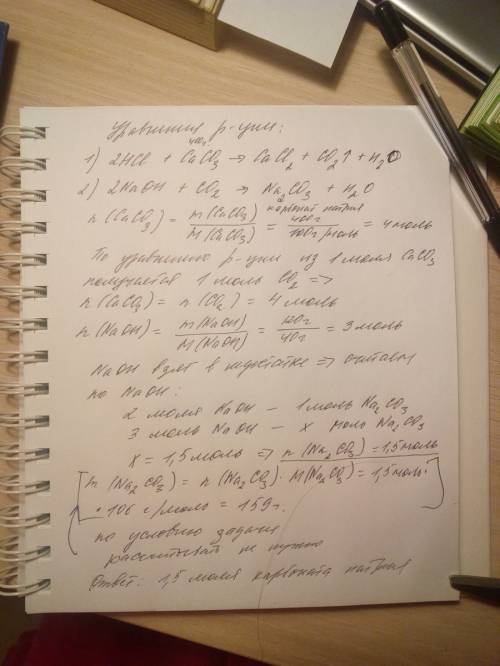 Уравнения р-ции:
400г.
1) 2HCl + CaCO₃ → CaCl₂ + CO₂↑ + H₂O
2) 2NaOH + CO₂ → Na₂CO₃ + H₂O
карбонат натрия
n(CaCO₃) = m(CaCO₃)/M(CaCO₃) = 400г/100г/моль = 4 моль
По уравнению р-ции из 1 моля CaCO₃
получается 1 моль CO₂ =>
n(CaCO₃) = n(CO₂) = 4 моль
n(NaOH) = m(NaOH)/M(NaOH) = 120г/40г = 3 моль
NaOH взят в недостатке => считаем
по NaOH:
2 моля NaOH – 1 моль Na₂CO₃
3 моль NaOH – x моль Na₂CO₃
x = 1,5 моль => n(Na₂CO₃) = 1,5 моль
m(Na₂CO₃) = n(Na₂CO₃) · M(Na₂CO₃) = 1,5 моль ·
· 106 г/моль = 159г.
по условию задачи
рассчитывать не нужно
Ответ: 1,5 моля карбоната натрия